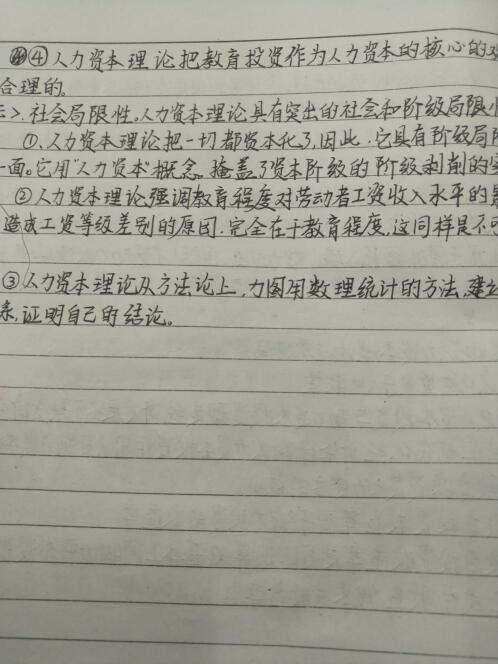 ④人力资本理论把教育投资作为人力资本的核心的观
合理的。
二>.社会局限性。人力资本理论具有突出的社会和阶级局限性
①、人力资本理论把一切都资本化了,因此.它具有阶级局限
一面。它用"人力资本"概念。掩盖了资本阶级的阶级剥削的实
②人力资本理论强调教育程度对劳动者工资收入水平的影
造成工资等级差别的原因.完全在于教育程度,这同样是不
③人力资本理论从方法论上,力图用数理统计的方法,建立
系,证明自己的结论。